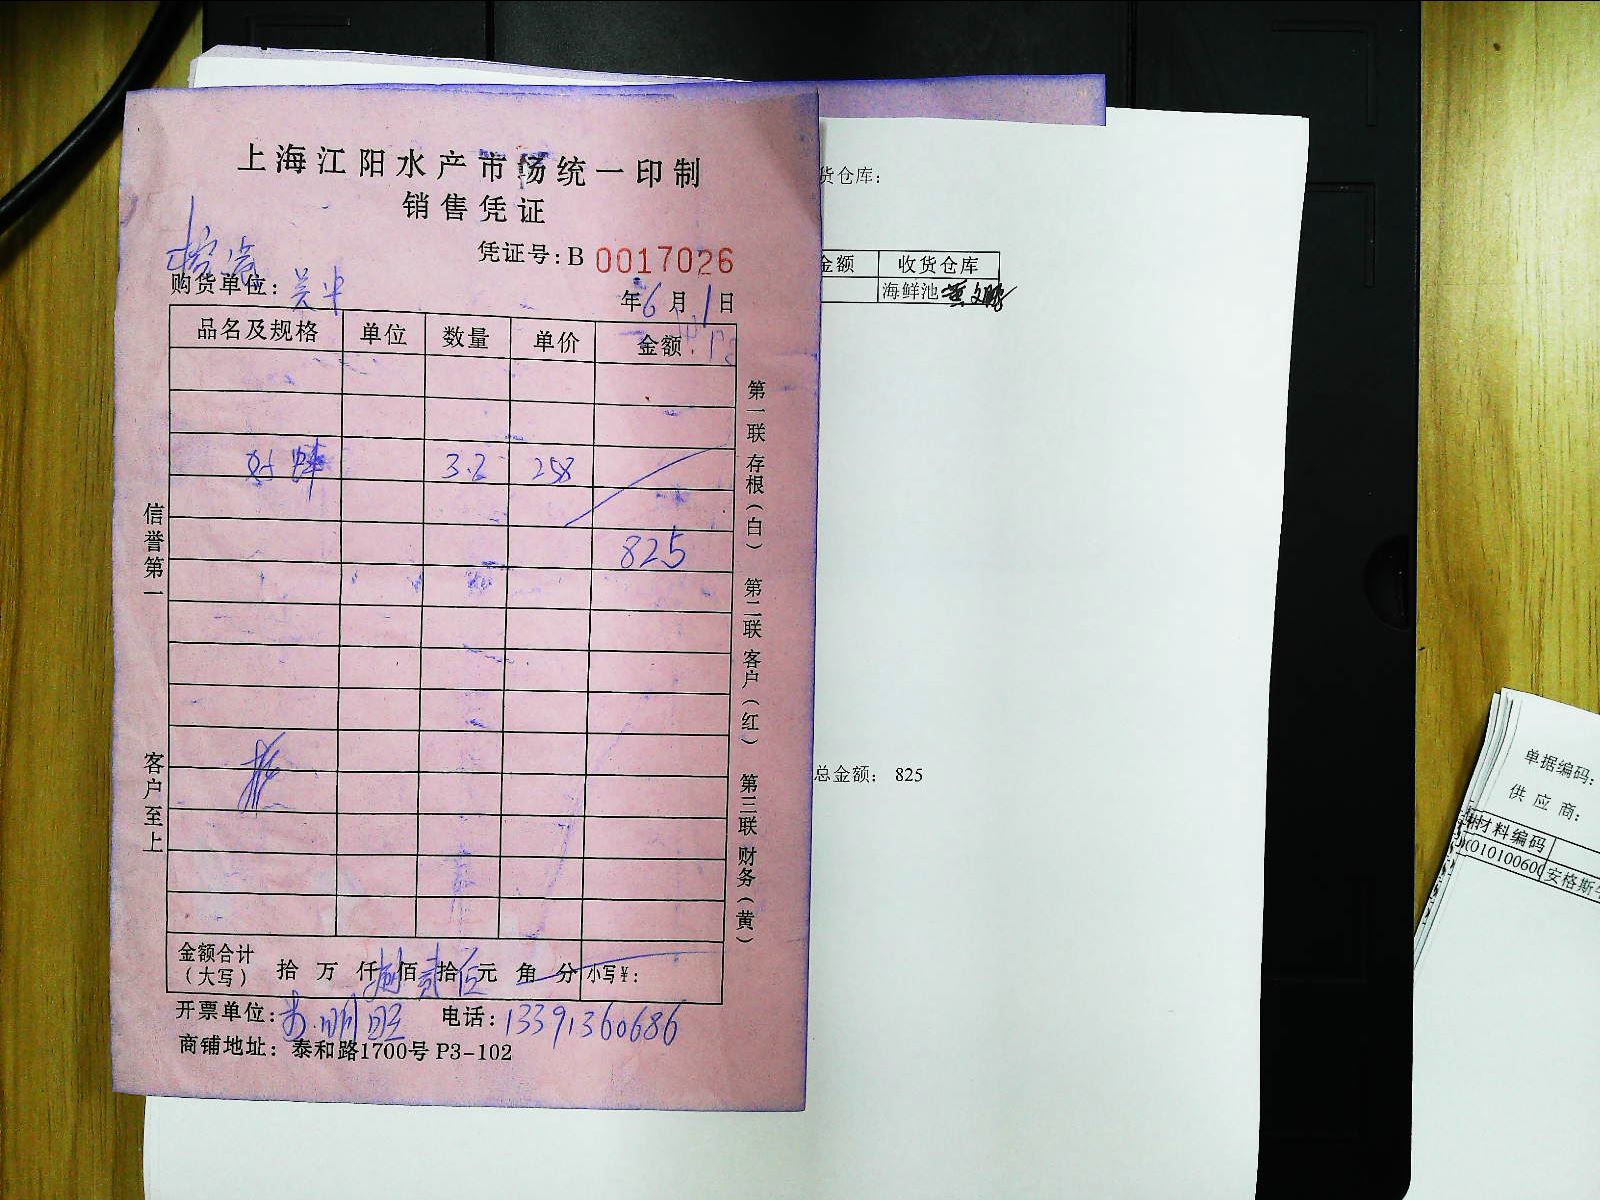 上海江阳水产市场统一印制
销售凭证
凭证号:B 0017026
购货单位:
年6月1日
品名及规格 单位 数量 单价 金额
3.2 258
825
金额合计(大写) 拾 万 仟 捌 佰 贰 拾 伍 元 角 分 小写¥:
开票单位: 电话:13391360686
商铺地址: 泰和路1700号 P3-102
信誉第一
客户至上
第一联 存根(白) 第二联 客户(红) 第三联 财务(黄)
货仓库:
金额 收货仓库
海鲜池
总金额: 825
单据编码:
供 应 商:
材料编码
安格斯